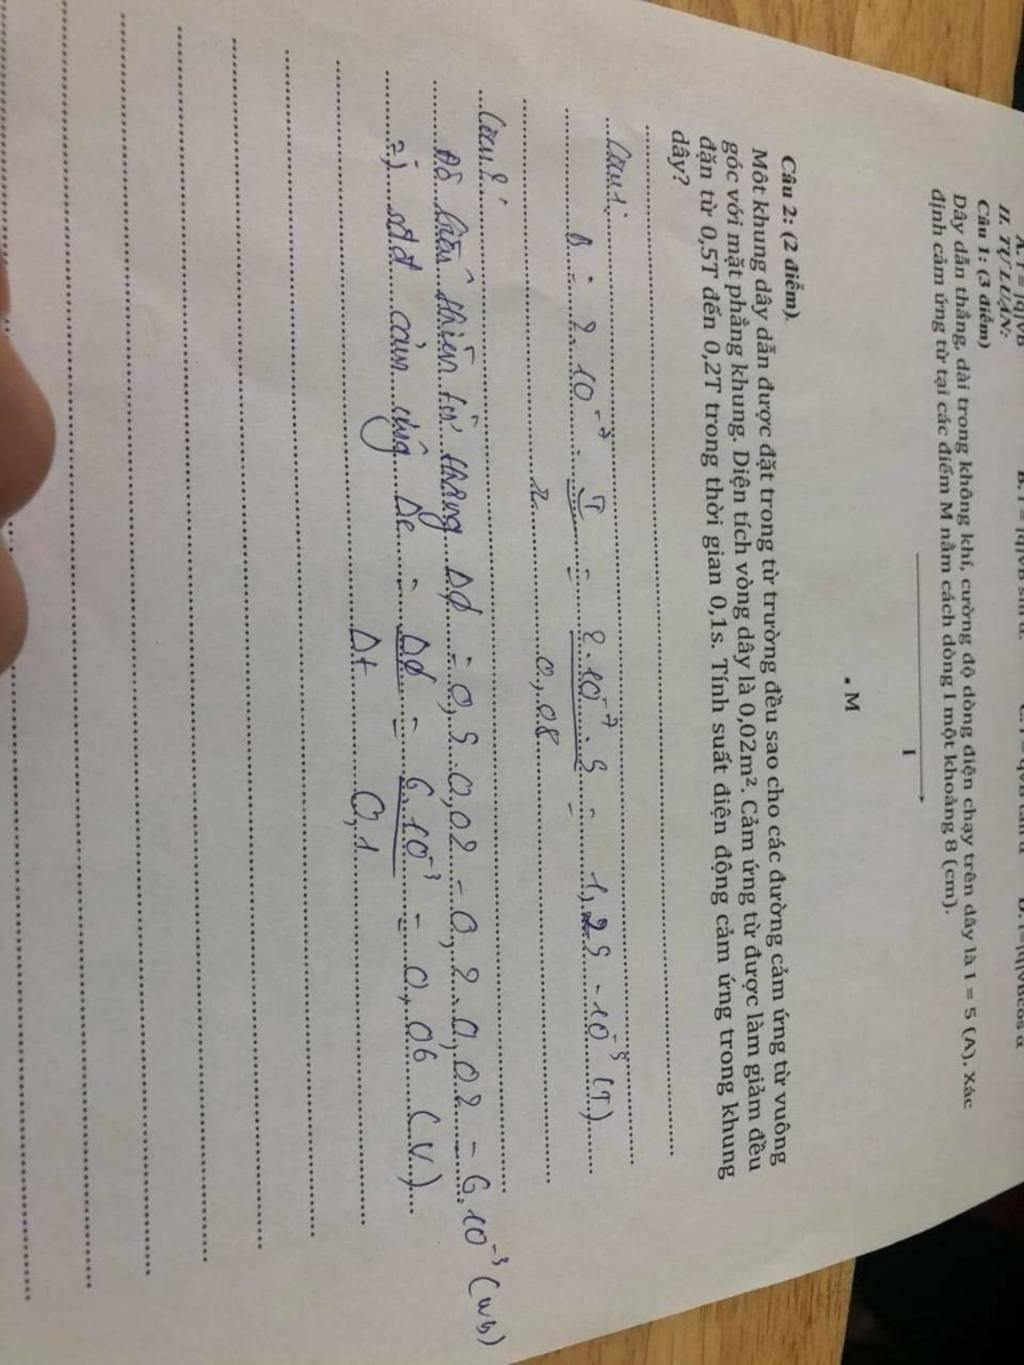 A. f = |q|vB
II. TỰ LUẬN:
Câu 1: (3 điểm)
Dây dẫn thẳng, dài trong không khí, cường độ dòng điện chạy trên dây là I = 5 (A), Xác
định cảm ứng từ tại các điểm M nằm cách dòng I một khoảng 8 (cm).
I
M
Câu 2: (2 điểm).
Một khung dây dẫn được đặt trong từ trường đều sao cho các đường cảm ứng từ vuông
góc với mặt phẳng khung. Diện tích vòng dây là 0,02m². Cảm ứng từ được làm giảm đều
đặn từ 0,5T đến 0,2T trong thời gian 0,1s. Tính suất điện động cảm ứng trong khung
dây?
Câu 1:
B = 2.10⁻⁷. I/r = 2.10⁻⁷.5/0,08 = 1,25.10⁻⁵ (T)
Câu 2:
Độ biến thiên từ thông ΔØ = 0,5.0,02 - 0,2.0,02 = 6.10⁻³ (wb)
=) sđđ cảm ứng Δe = ΔØ/Δt = 6.10⁻³/0,1 = 0,06 (V)